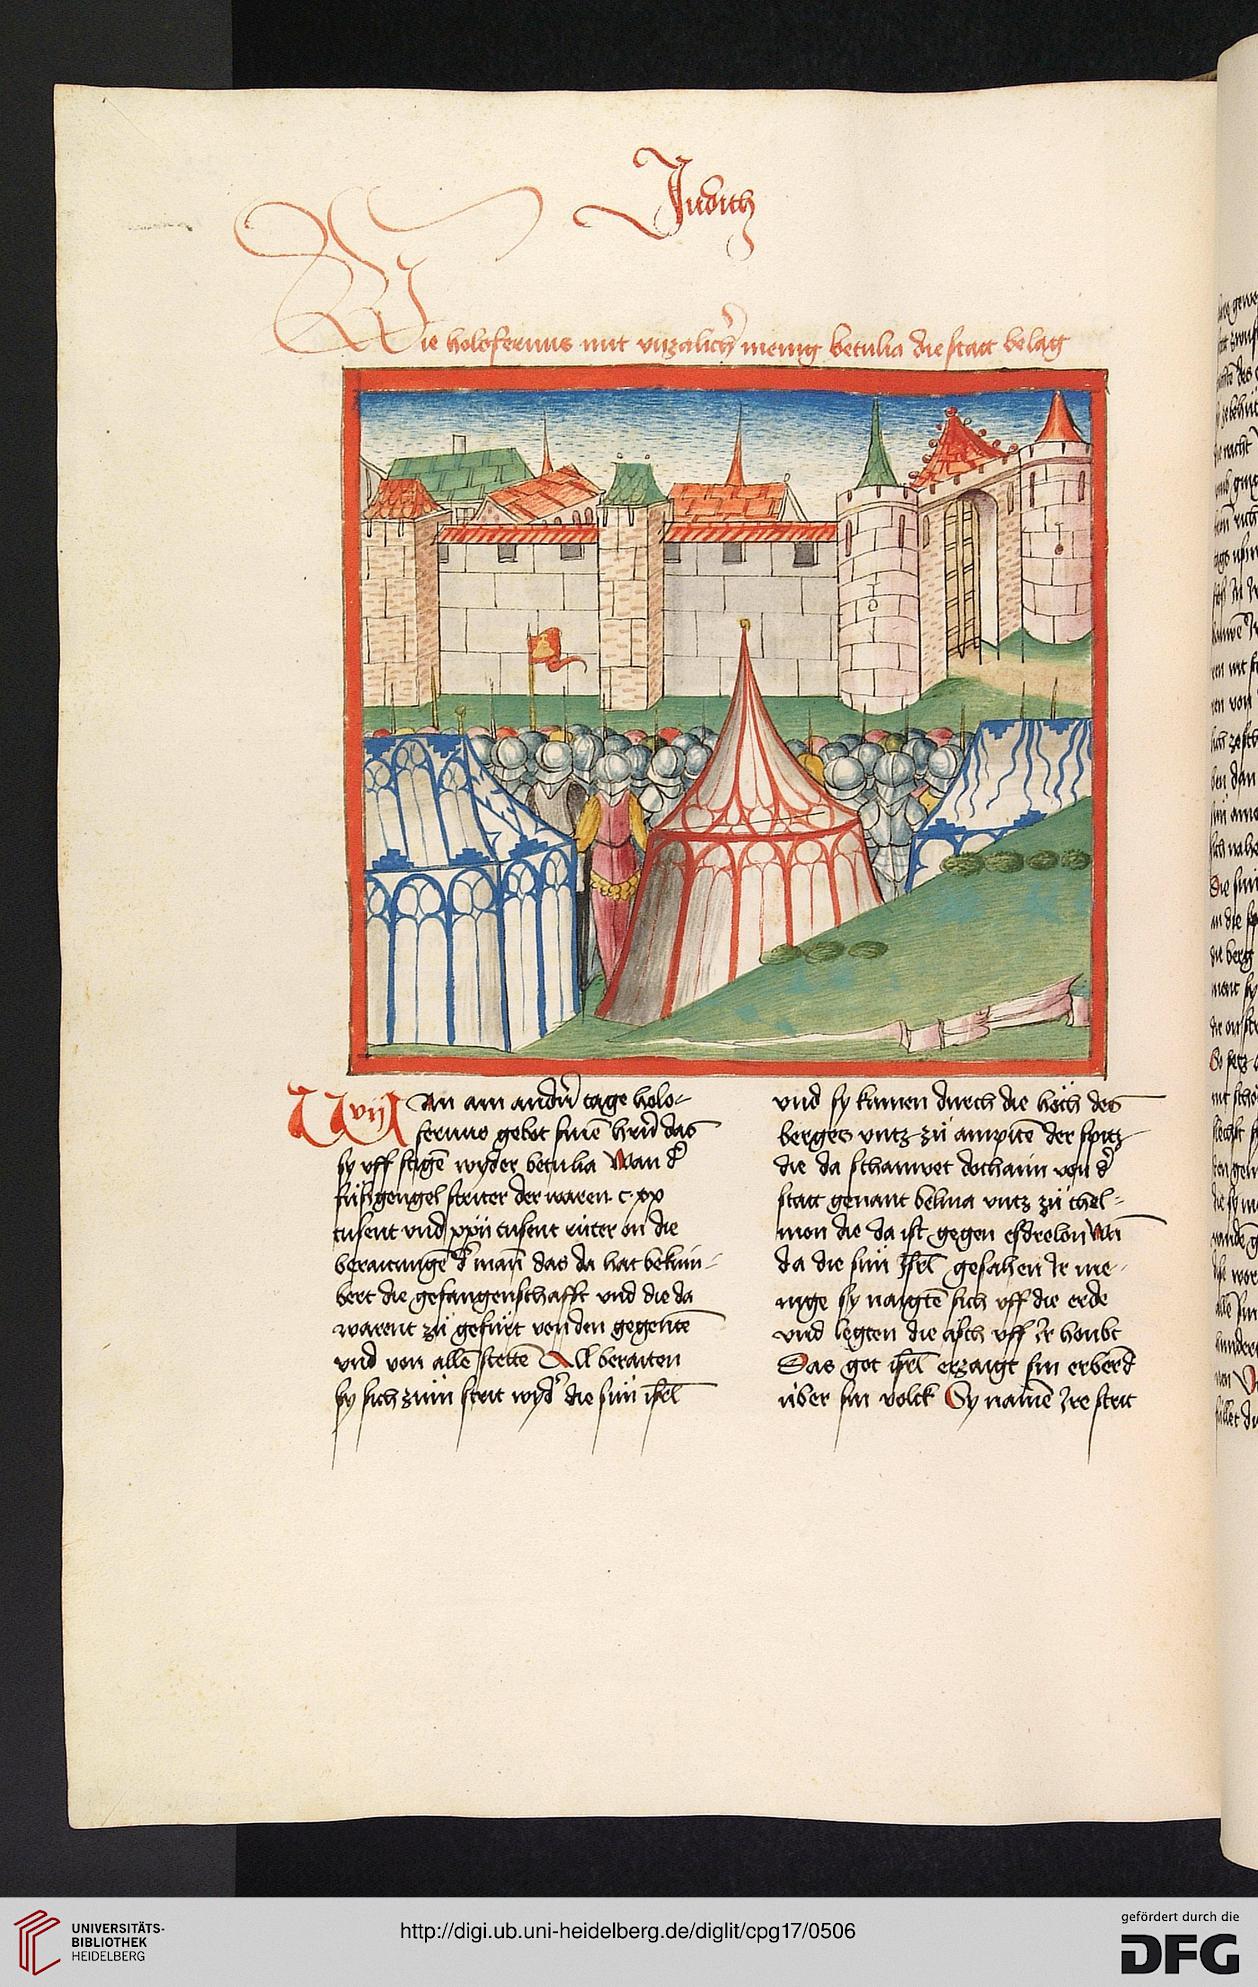 Judith
Wie holofernus mit vnzalicher menig betulia die statt belag
vij
Wan am andern tage holo-
fernus gebot sinē herñ das
sy vff stigē wyder betulia Wan dˀ
fůßgengel striter der waren c xx
tusent vnd xxii tusent rüter on die
beraitungē dˀ mañ das da hat beküm-
bert die gefangenschafft vnd die da
warent zů gefürt von den gegentē
vnd von allē stettē All beraiten
sy sich zum strit wydˀ die sün isrl̄
vnd sy kamen durch die höch des
berges vntz zů ampitē der spitz
die da schawet dochaim von dˀ
statt genant belma vntz zů chel-
mon die da ist gegen esdrelon Wañ
da die sün Jsrl̄ gesahen Jr me-
nige sy naigtē sich vff die erde
vnd legten die äsch vff Jr houbt
Das got isrl̄ erzaigt sin erbermd
über sin volck Sy namē Jre strit
UNIVERSITÄTS-
BIBLIOTHEK
HEIDELBERG
http://digi.ub.uni-heidelberg.de/diglit/cpg17/0506
gefördert durch die
DFG